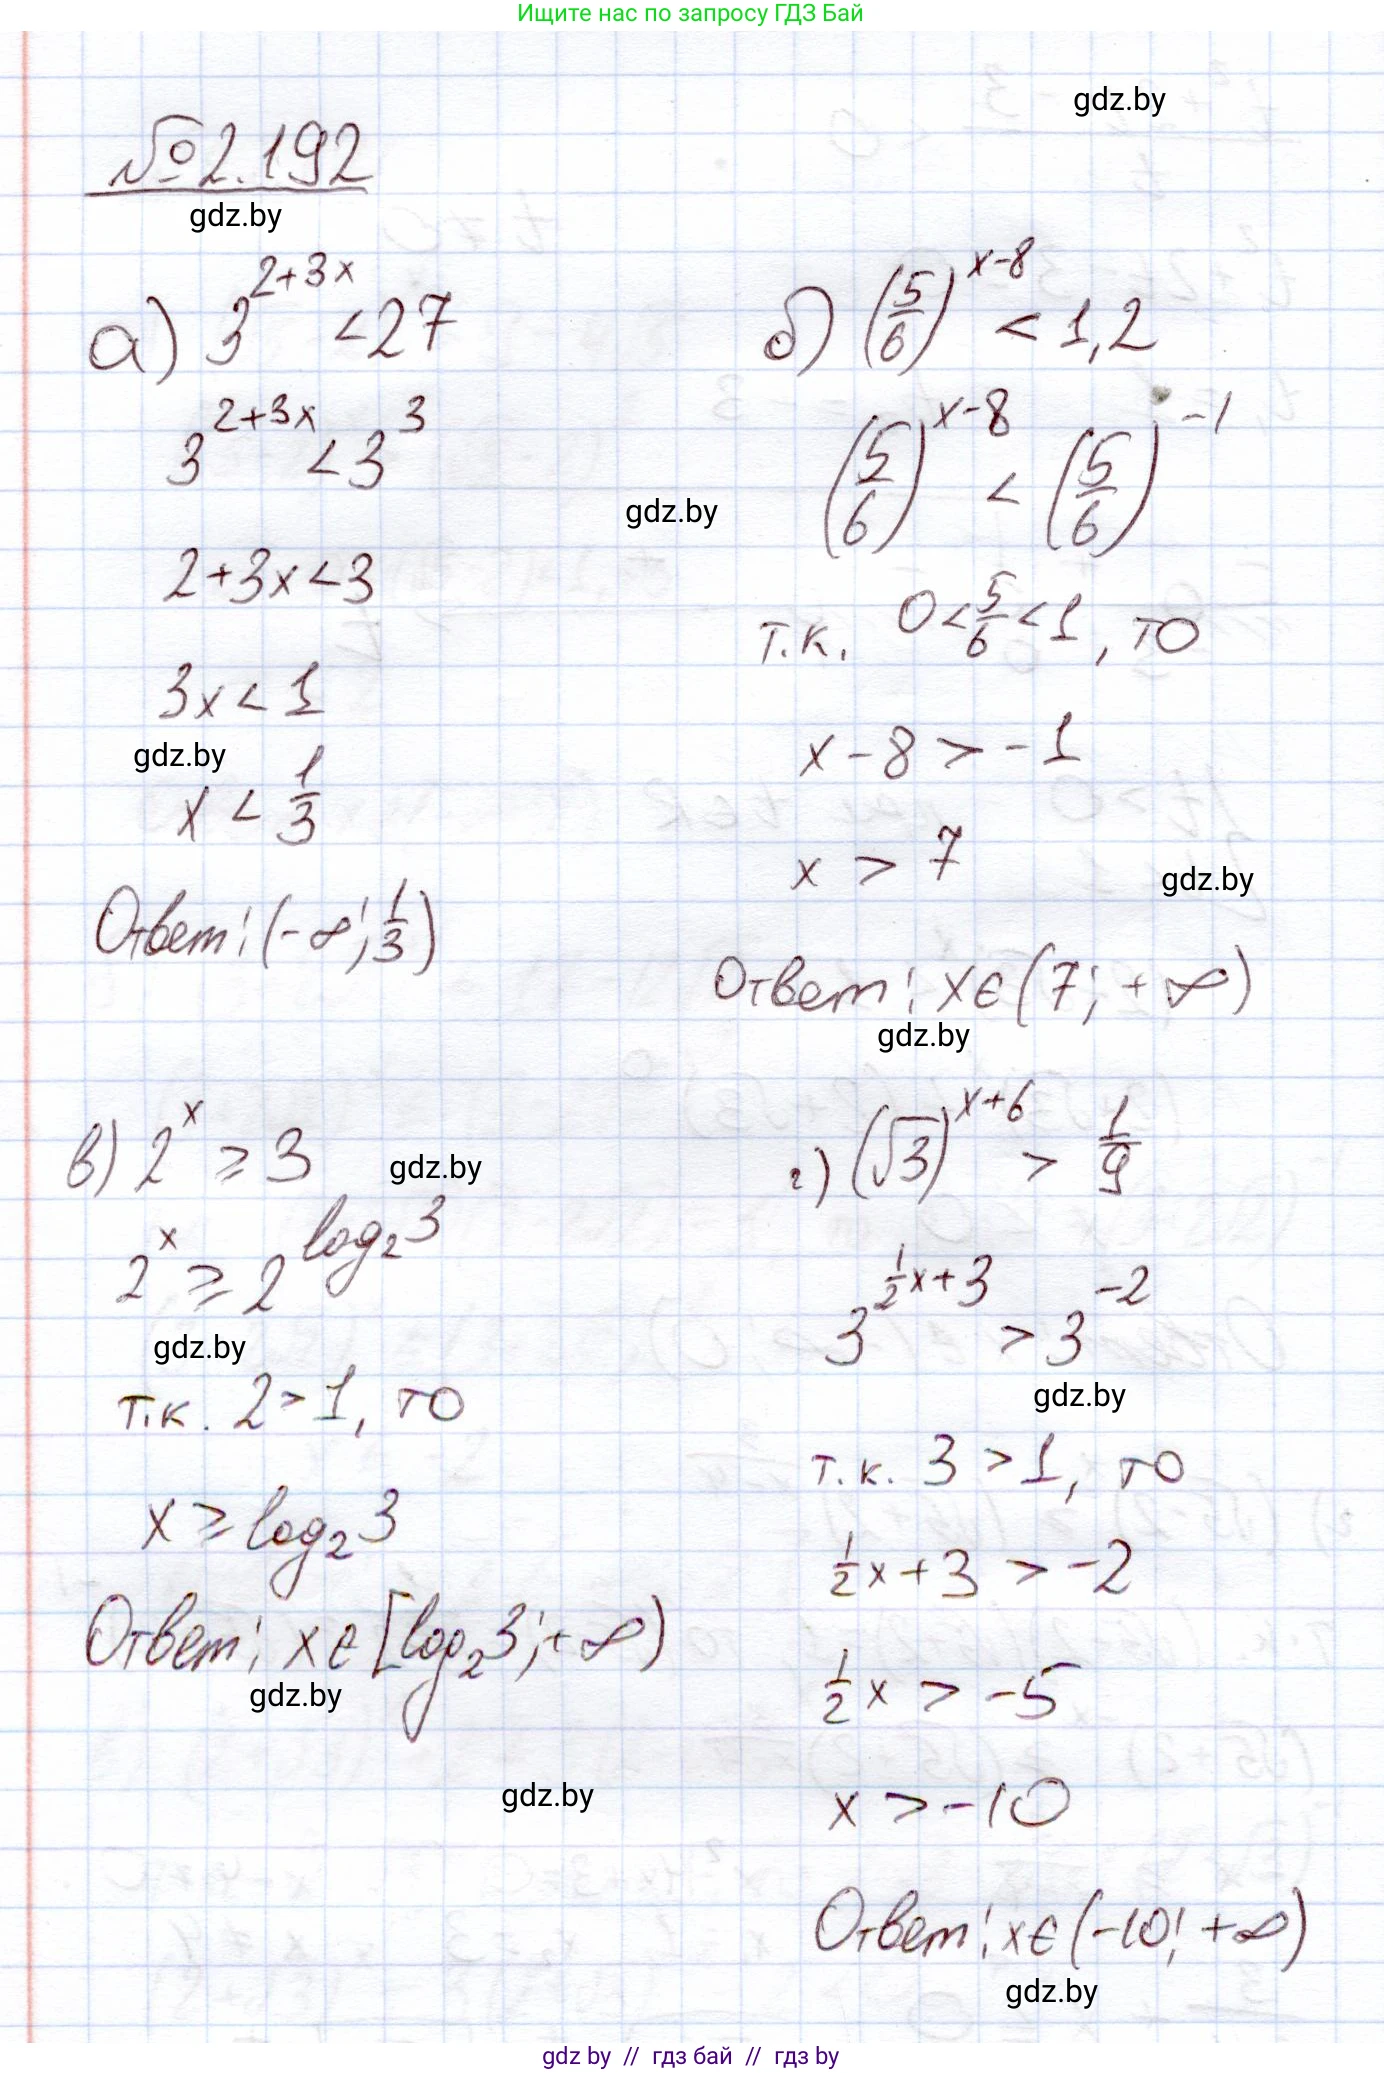 Ищите нас по запросу ГДЗ Бай
gdz.by
№2.192
gdz.by
а) 3^{2+3x} < 27
3^{2+3x} < 3^3
2+3x<3
3x < 1
gdz.by
x < 1/3
Ответ: (-∞; 1/3)
б) (5/6)^{x-8} < 1,2
(5/6)^{x-8} < (5/6)^{-1}
gdz.by
т.к. 0 < 5/6 < 1, то
x - 8 > -1
x > 7
gdz.by
Ответ: x∈(7; +∞)
gdz.by
в) 2^x ≥ 3
gdz.by
2^x ≥ 2^{log_2 3}
gdz.by
т.к. 2 > 1, то
x ≥ log_2 3
Ответ: x∈[log_2 3; +∞)
gdz.by
gdz.by
г) (√3)^{x+6} > 1/9
3^{1/2 x+3} > 3^{-2}
gdz.by
т.к. 3 > 1, то
1/2 x + 3 > -2
1/2 x > -5
x > -10
Ответ: x∈(-10; +∞)
gdz.by
gdz by // гдз бай // гдз by